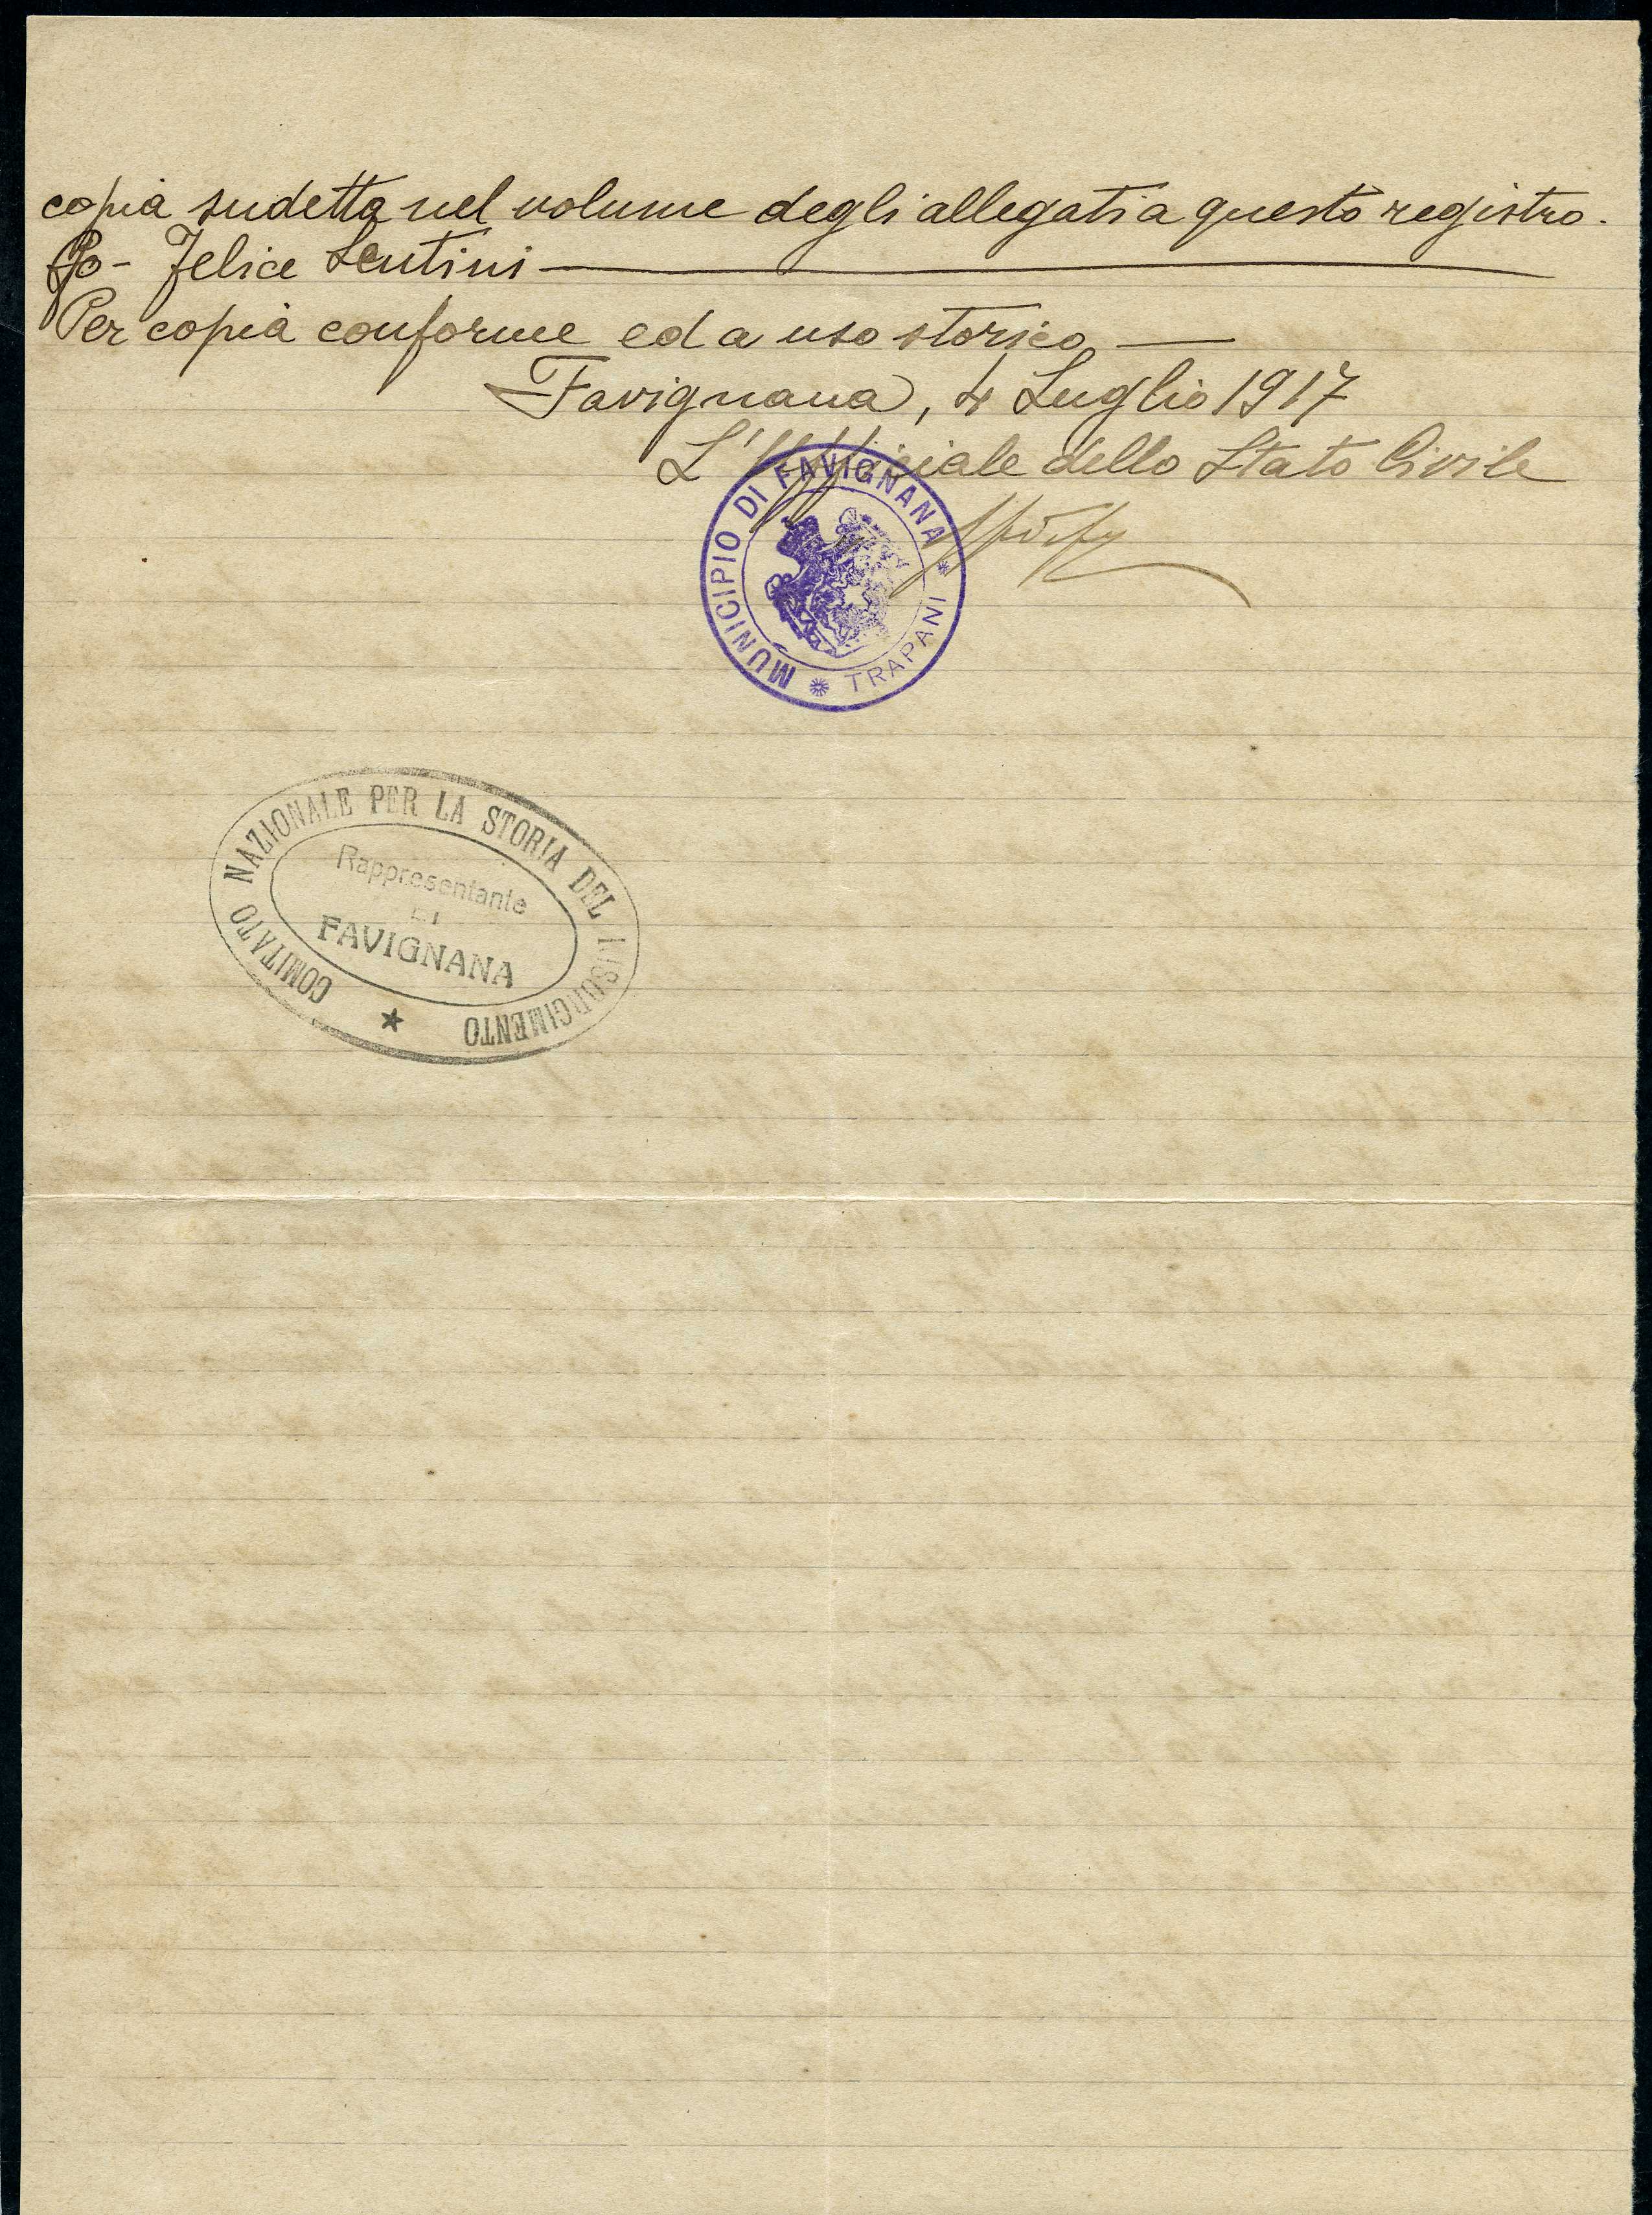 copia sudetta nel volume degli allegati a questo registro.
Fo- Felice Lentini
Per copia conforme ed a uso storico
Favignana, 4 Luglio 1917
L'Ufficiale dello Stato Civile
MUNICIPIO DI FAVIGNANA
TRAPANI
COMITATO NAZIONALE PER LA STORIA DEL RISORGIMENTO
Rappresentante
DI
FAVIGNANA